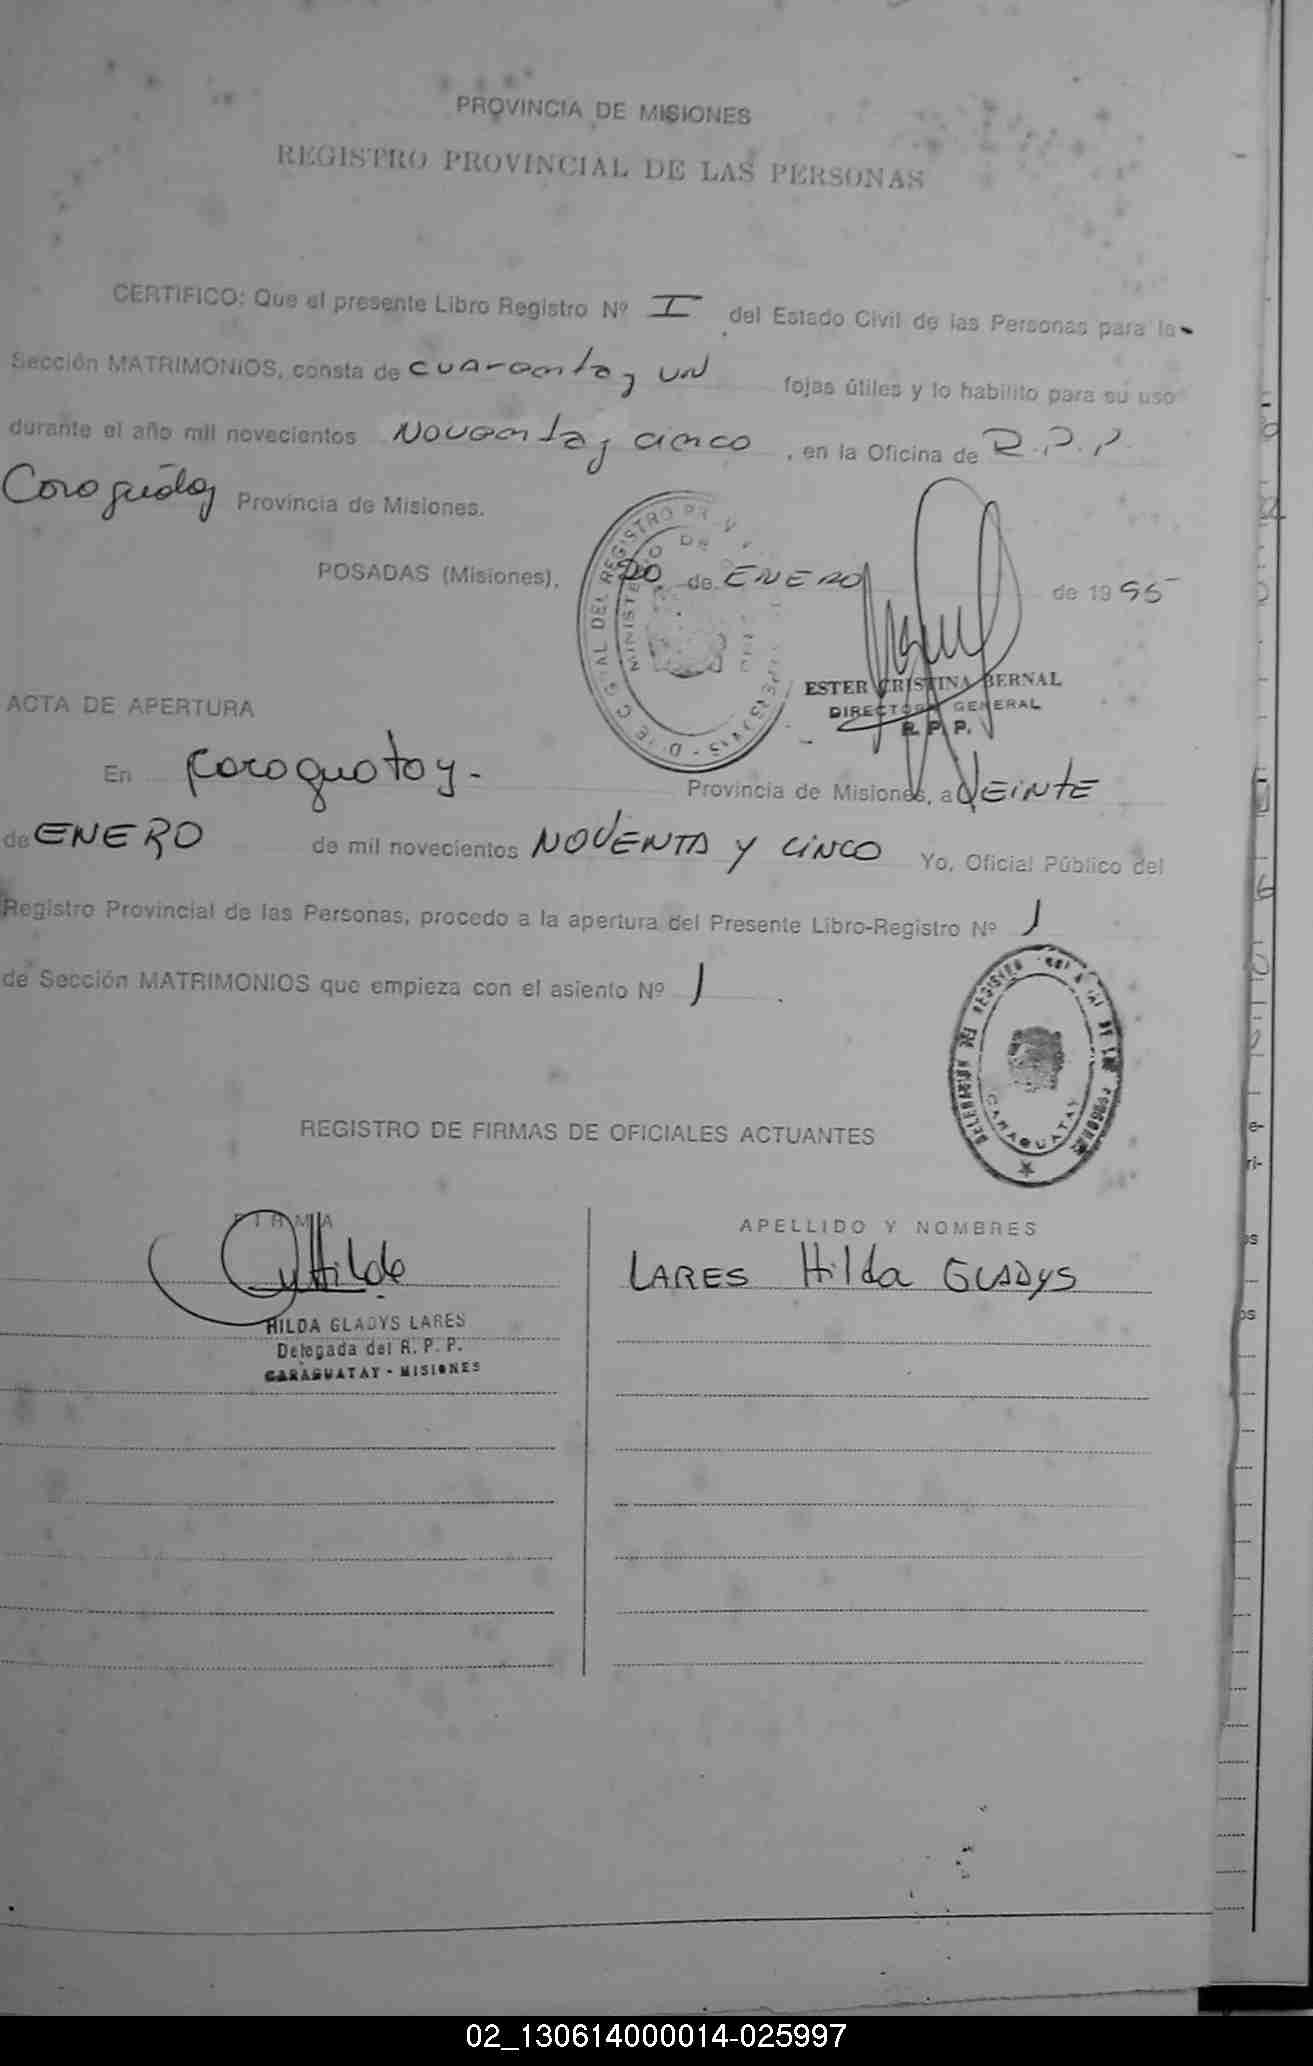 PROVINCIA DE MISIONES
REGISTRO PROVINCIAL DE LAS PERSONAS
CERTIFICO: Que el presente Libro Registro Nº I del Estado Civil de las Personas para la
Sección MATRIMONIOS, consta de cuarenta y un fojas útiles y lo habilito para su uso
durante el año mil novecientos Noventa y cinco, en la Oficina de R.P.P.
Provincia de Misiones.
POSADAS (Misiones), 20 de ENERO de 1995
ESTER CRISTINA BERNAL
DIRECTORA GENERAL
R. P. P.
ACTA DE APERTURA
En Caraguatay.- Provincia de Misiones, a VEINTE
de ENERO de mil novecientos NOVENTA y CINCO Yo, Oficial Público del
Registro Provincial de las Personas, procedo a la apertura del Presente Libro-Registro Nº 1
de Sección MATRIMONIOS que empieza con el asiento Nº 1.
CARAGUATAY
REGISTRO DE FIRMAS DE OFICIALES ACTUANTES
FIRMA APELLIDO Y NOMBRES
LARES Hilda GLADYS
HILDA GLADYS LARES
Delegada del R. P. P.
CARAGUATAY - MISIONES
02_130614000014-025997